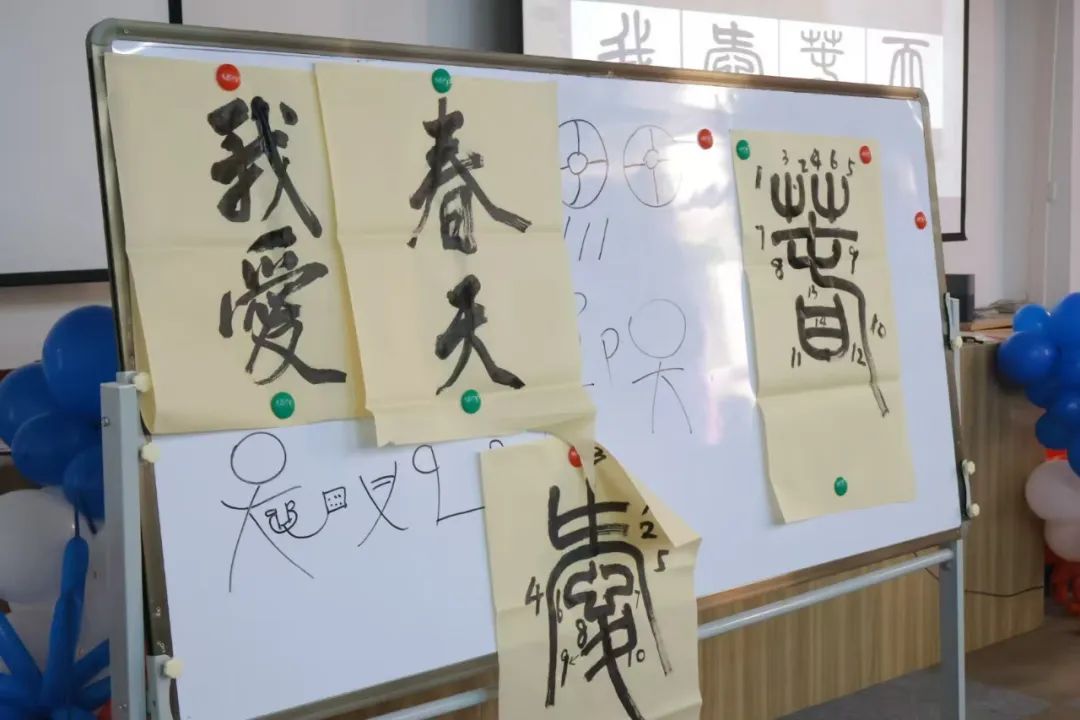 我 愛 春 天
我愛
春天
1 3 2 4 6 5
春
7
8 9
13
14 10
11 12
P
3
愛
1
2
5
4 6 7
8
9 10